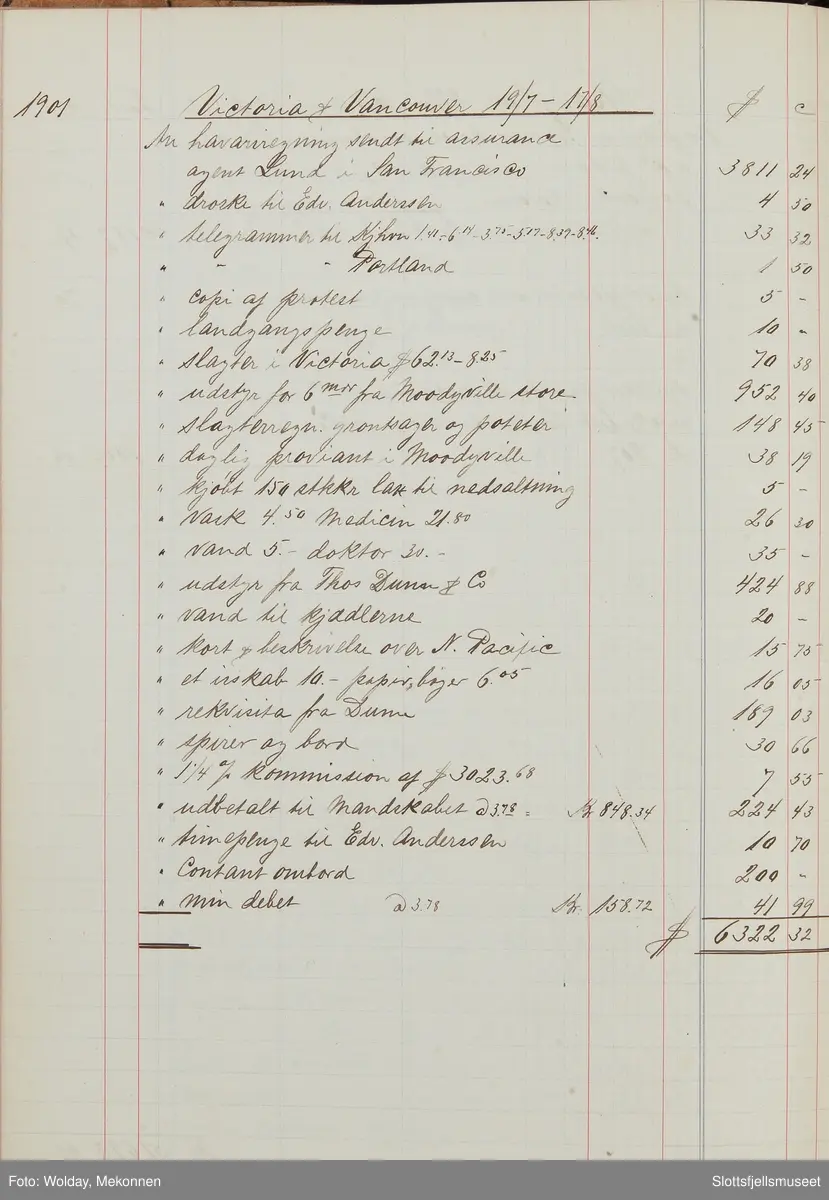 1901 Victoria & Vancouver 19/7 - 17/8 $ c
An havariregning sendt til assurance
agent Lund i San Francisco 3811 24
" droske til Edv. Anderssen 4 50
" telegrammer til Kjhvn 1.41 - 6.14 - 3.75 - 5.17 - 8.39 - 8.46. 33 32
" " " Portland 1 50
" copi af protest 5 -
" landgangspenge 10 "
" slagter i Victoria $ 62.13 - 8.25 70 38
" udstyr for 6 mdr fra Moodyville store 952 40
" slagterregn. grøntsager og poteter 148 45
" daglig proviant i Moodyville 38 19
" kjøbt 150 stkkr lax til nedsaltning 5 -
" vask 4.50 Medicin 21.80 26 30
" vand 5.- doktor 30.- 35 -
" udstyr fra Thos Dunn & Co 424 88
" vand til kjædlerne 20 -
" kort & beskrivelse over N. Pacific 15 75
" et isskab 10.- papir, bøger 6.05 16 05
" rekvisita fra Dunn 189 03
" spirer og bord 30 66
" 1/4 % kommission af $ 3023.68 7 55
" udbetalt til Mandskabet à 3.78 = Kr 848.34 224 43
" timepenge til Edv. Anderssen 10 70
" Contant ombord 200 "
" min debet à 3.78 Kr. 158.72 41 99
$ 6322 32
Foto: Wolday, Mekonnen Slottsfjellsmuseet